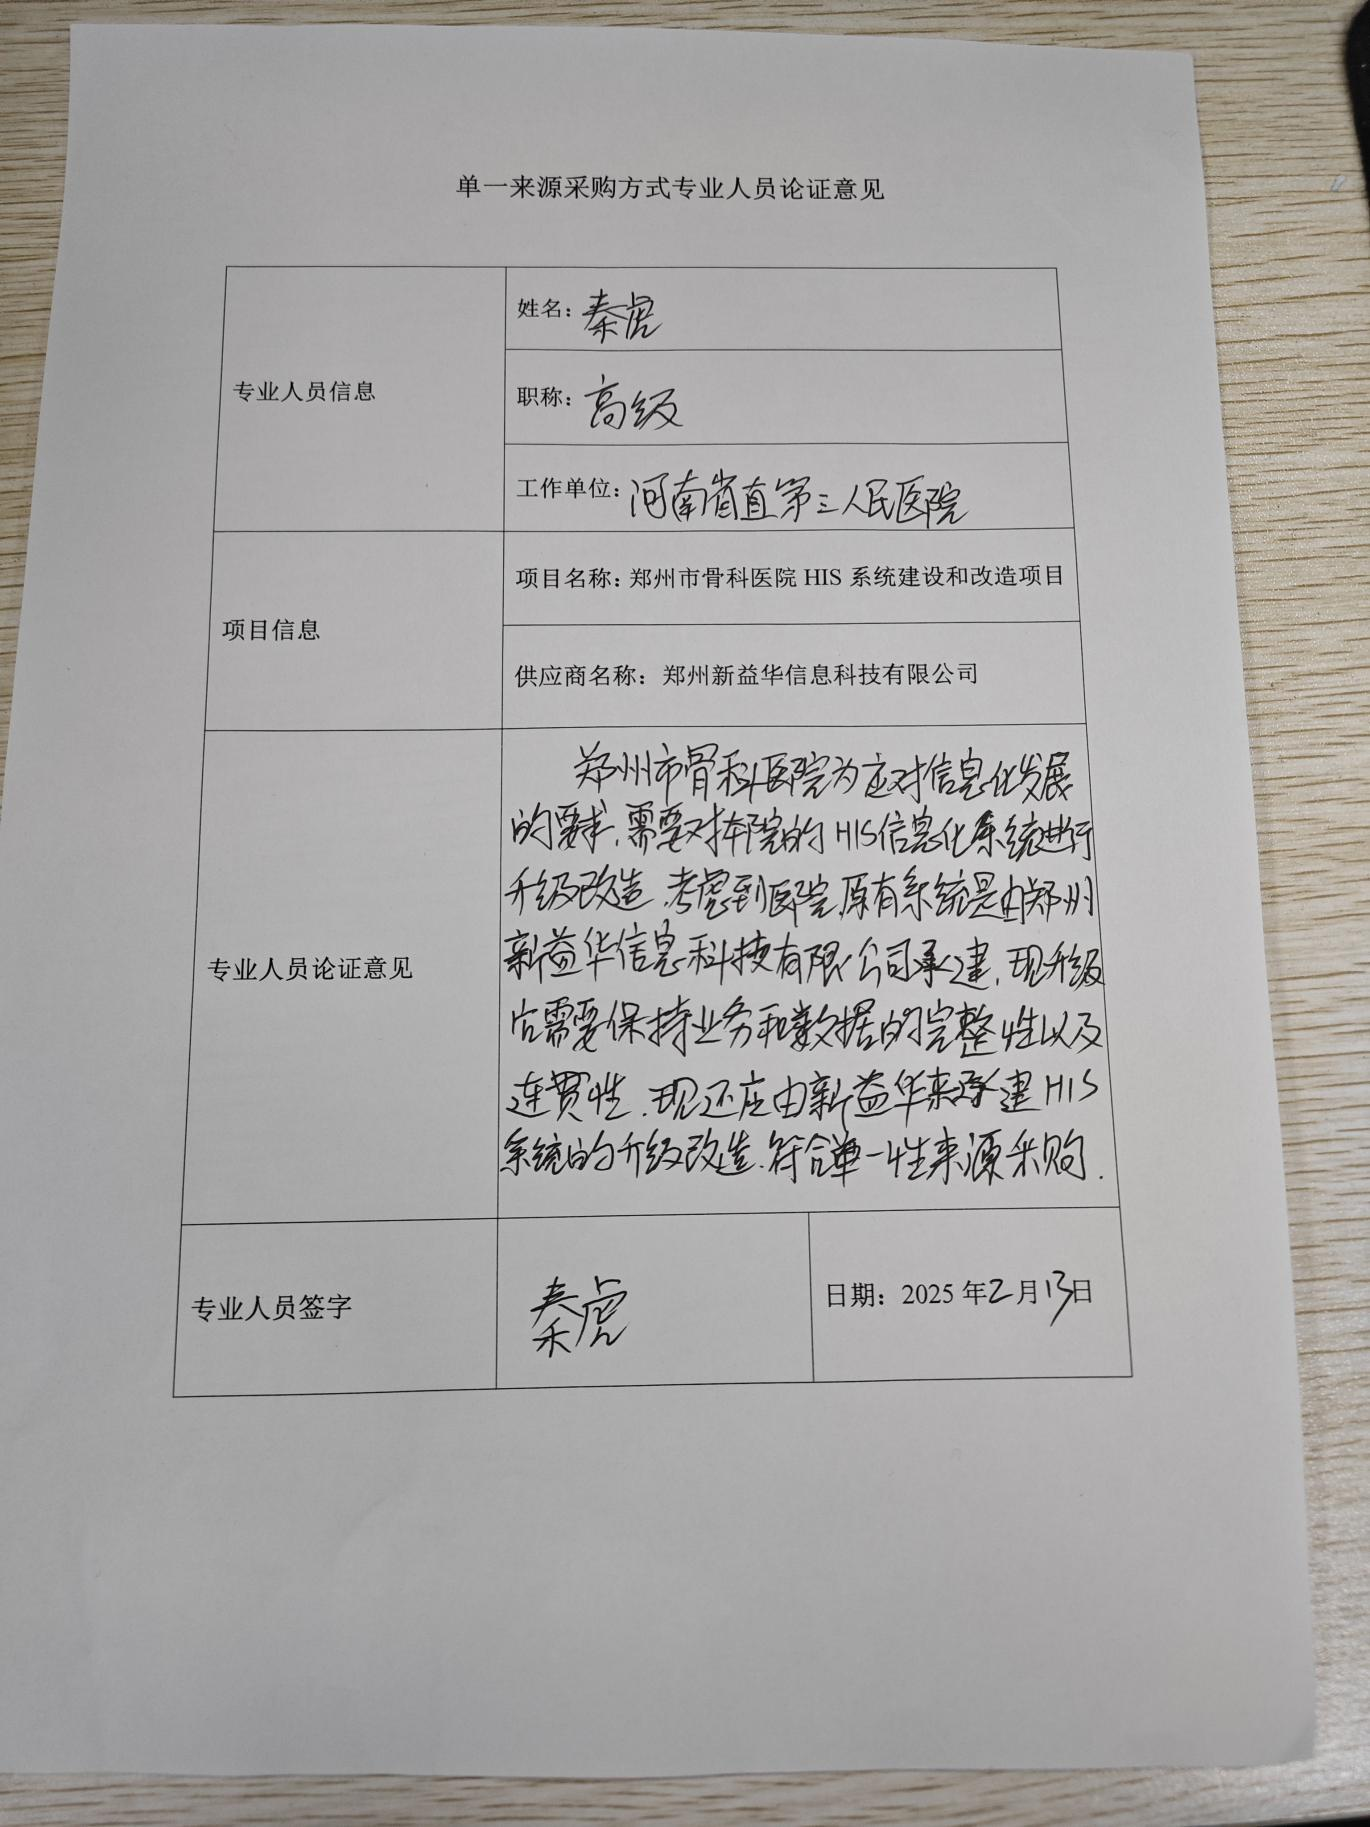 单一来源采购方式专业人员论证意见
专业人员信息
姓名：秦虎
职称：高级
工作单位：河南省直第三人民医院
项目信息
项目名称：郑州市骨科医院 HIS 系统建设和改造项目
供应商名称：郑州新益华信息科技有限公司
专业人员论证意见
郑州市骨科医院为应对信息化发展
的要求，需要对本院的HIS信息化系统进行
升级改造，考虑到医院原有系统是由郑州
新益华信息科技有限公司承建，现升级
后需要保持业务和数据的完整性以及
连贯性，现还应由新益华来承建HIS
系统的升级改造，符合单一性来源采购.
专业人员签字
秦虎
日期：2025 年2月13日